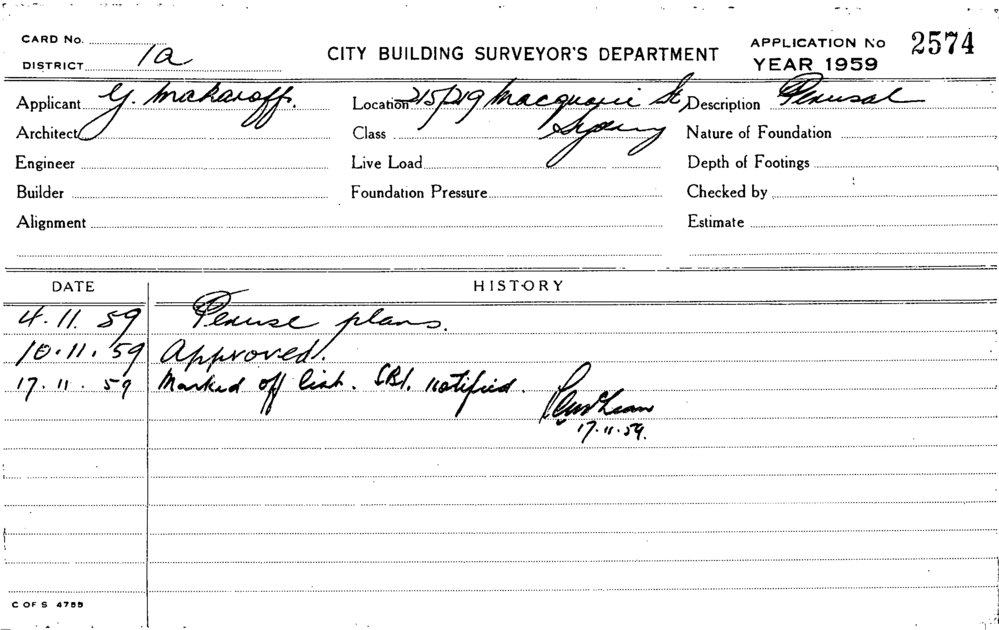 CARD No.
DISTRICT 1a
CITY BUILDING SURVEYOR'S DEPARTMENT
APPLICATION No 2574
YEAR 1959
Applicant Y. Makaroff. Location 215/219 Macquarie St, Description Perusal
Architect Class Sydney Nature of Foundation
Engineer Live Load Depth of Footings
Builder Foundation Pressure Checked by
Alignment Estimate
DATE HISTORY
4.11.59 Peruse plans.
10.11.59 Approved.
17.11.59 Marked off list. SBI. notified.
17.11.59.
C OF S 4755